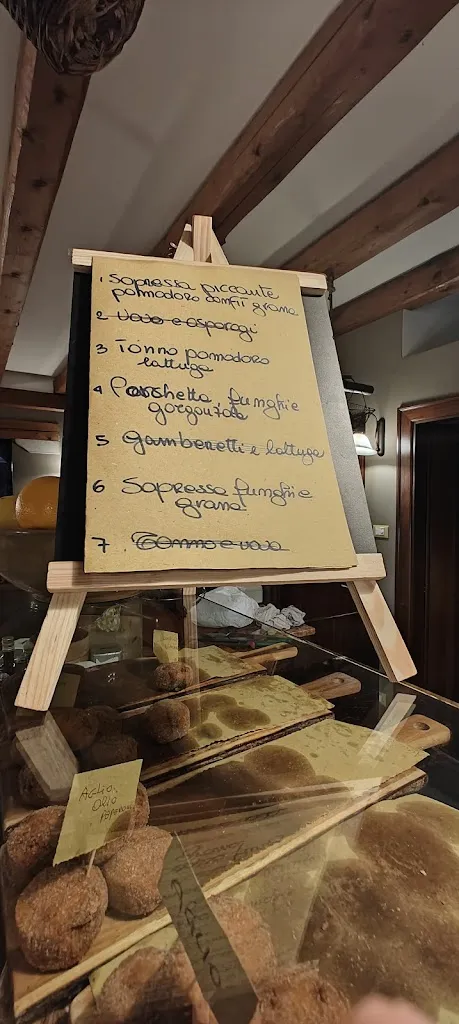 1 Sopressa piccante
pomodoro comfit grana
2 Uovo e asparagi
3 Tonno pomodoro
lattuga
4 Porchetta, funghi e
gorgonzola
5 gamberetti e lattuga
6 Sopressa funghi e
grana
7 Tonno e uovo
Aglio,
Olio